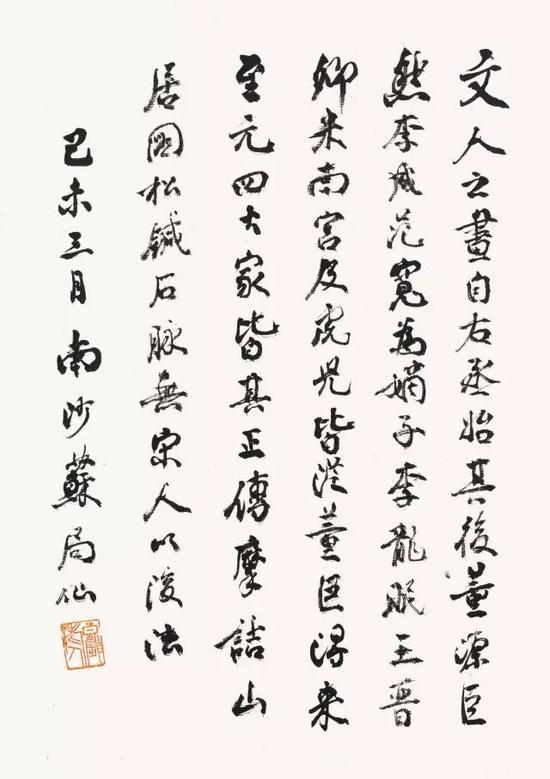 文人之畫自右丞始其後董源臣
然李成范寬為嫡子李龍眠王晉
卿米南宮及虎児皆從董巨得来
至元四大家皆其正傳摩詰山
居圖松鍼石脉無宋人以後法
己未三月南沙蘇局仙